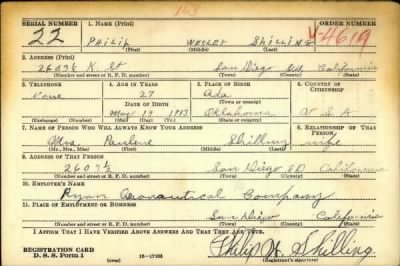 163
SERIAL NUMBER 1. NAME (Print) ORDER NUMBER
22 PHILIP WESLEY SHILLING V-4619
(First) (Middle) (Last)
2. ADDRESS (Print)
2603½ K St San Diego California
(Number and street or R. F. D. number) (Town) (County) (State)
3. TELEPHONE 4. AGE IN YEARS 5. PLACE OF BIRTH 6. COUNTRY OF CITIZENSHIP
None 27 Ada
DATE OF BIRTH (Town or county)
May 19 1913 Oklahoma U S A
(Exchange) (Number) (Mo.) (Day) (Yr.) (State or country)
7. NAME OF PERSON WHO WILL ALWAYS KNOW YOUR ADDRESS 8. RELATIONSHIP OF THAT PERSON
Mrs. Paulene Shilling wife
(Mr., Mrs., Miss) (First) (Middle) (Last)
9. ADDRESS OF THAT PERSON
2603½ San Diego SD California
(Number and street or R. F. D. number) (Town) (County) (State)
10. EMPLOYER'S NAME
Ryan Aeronautical Company
11. PLACE OF EMPLOYMENT OR BUSINESS
San Diego California
(Number and street or R. F. D. number) (Town) (County) (State)
I AFFIRM THAT I HAVE VERIFIED ABOVE ANSWERS AND THAT THEY ARE TRUE.
REGISTRATION CARD
D. S. S. Form 1 (over) 16-17105 Philip W. Shilling
(Registrant's signature)